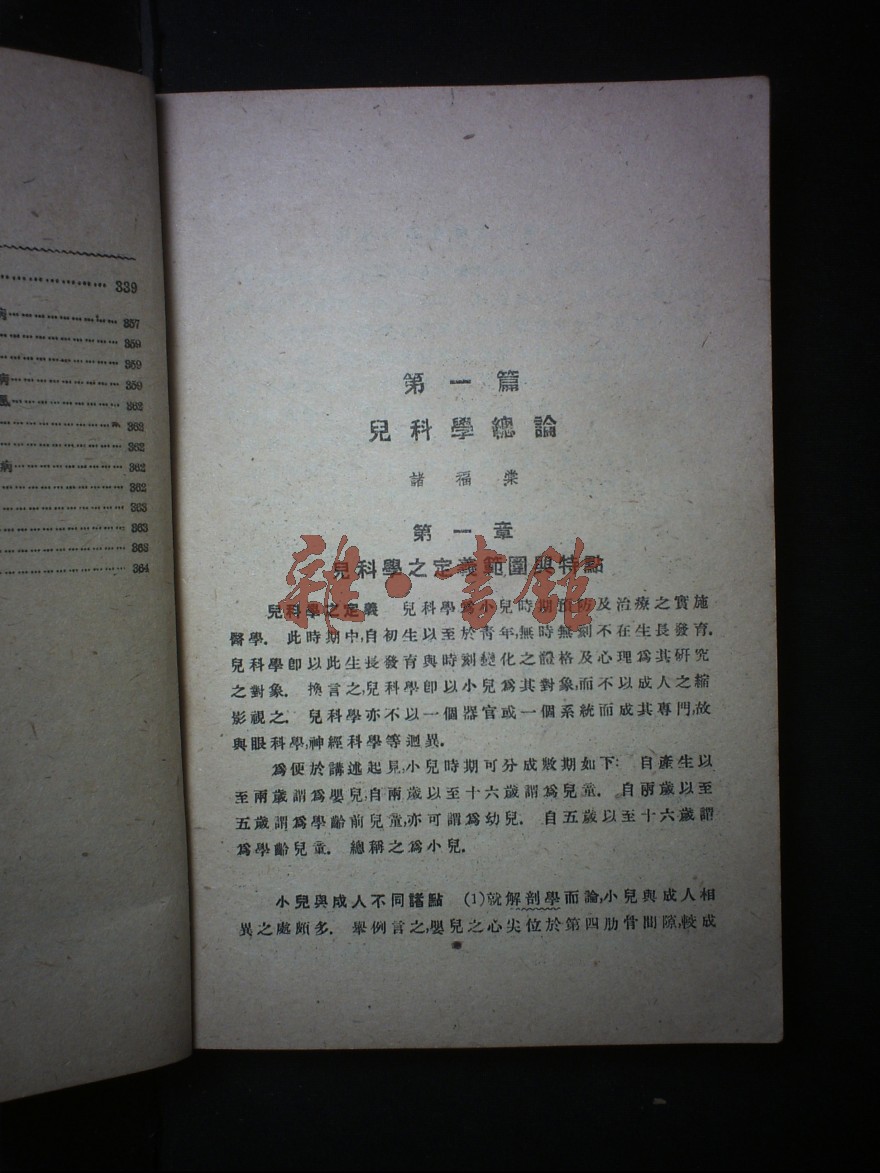 339
病 357
359
359
病 359
風 362
362
362
病 362
362
363
363
363
364
第一篇
兒科學總論
諸福棠
第一章
兒科學之定義範圍與特點
雜·書館
兒科學之定義 兒科學爲小兒時期預防及治療之實施
醫學. 此時期中,自初生以至於靑年,無時無刻不在生長發育.
兒科學卽以此生長發育與時刻變化之體格及心理爲其研究
之對象. 換言之,兒科學卽以小兒爲其對象,而不以成人之縮
影視之. 兒科學亦不以一個器官或一個系統而成其專門,故
與眼科學,神經科學等迥異.
爲便於講述起見,小兒時期可分成數期如下: 自產生以
至兩歲謂爲嬰兒,自兩歲以至十六歲謂爲兒童. 自兩歲以至
五歲謂爲學齡前兒童,亦可謂爲幼兒. 自五歲以至十六歲謂
爲學齡兒童. 總稱之爲小兒.
小兒與成人不同諸點 (1)就解剖學而論,小兒與成人相
異之處頗多. 舉例言之,嬰兒之心尖位於第四肋骨間隙,較成